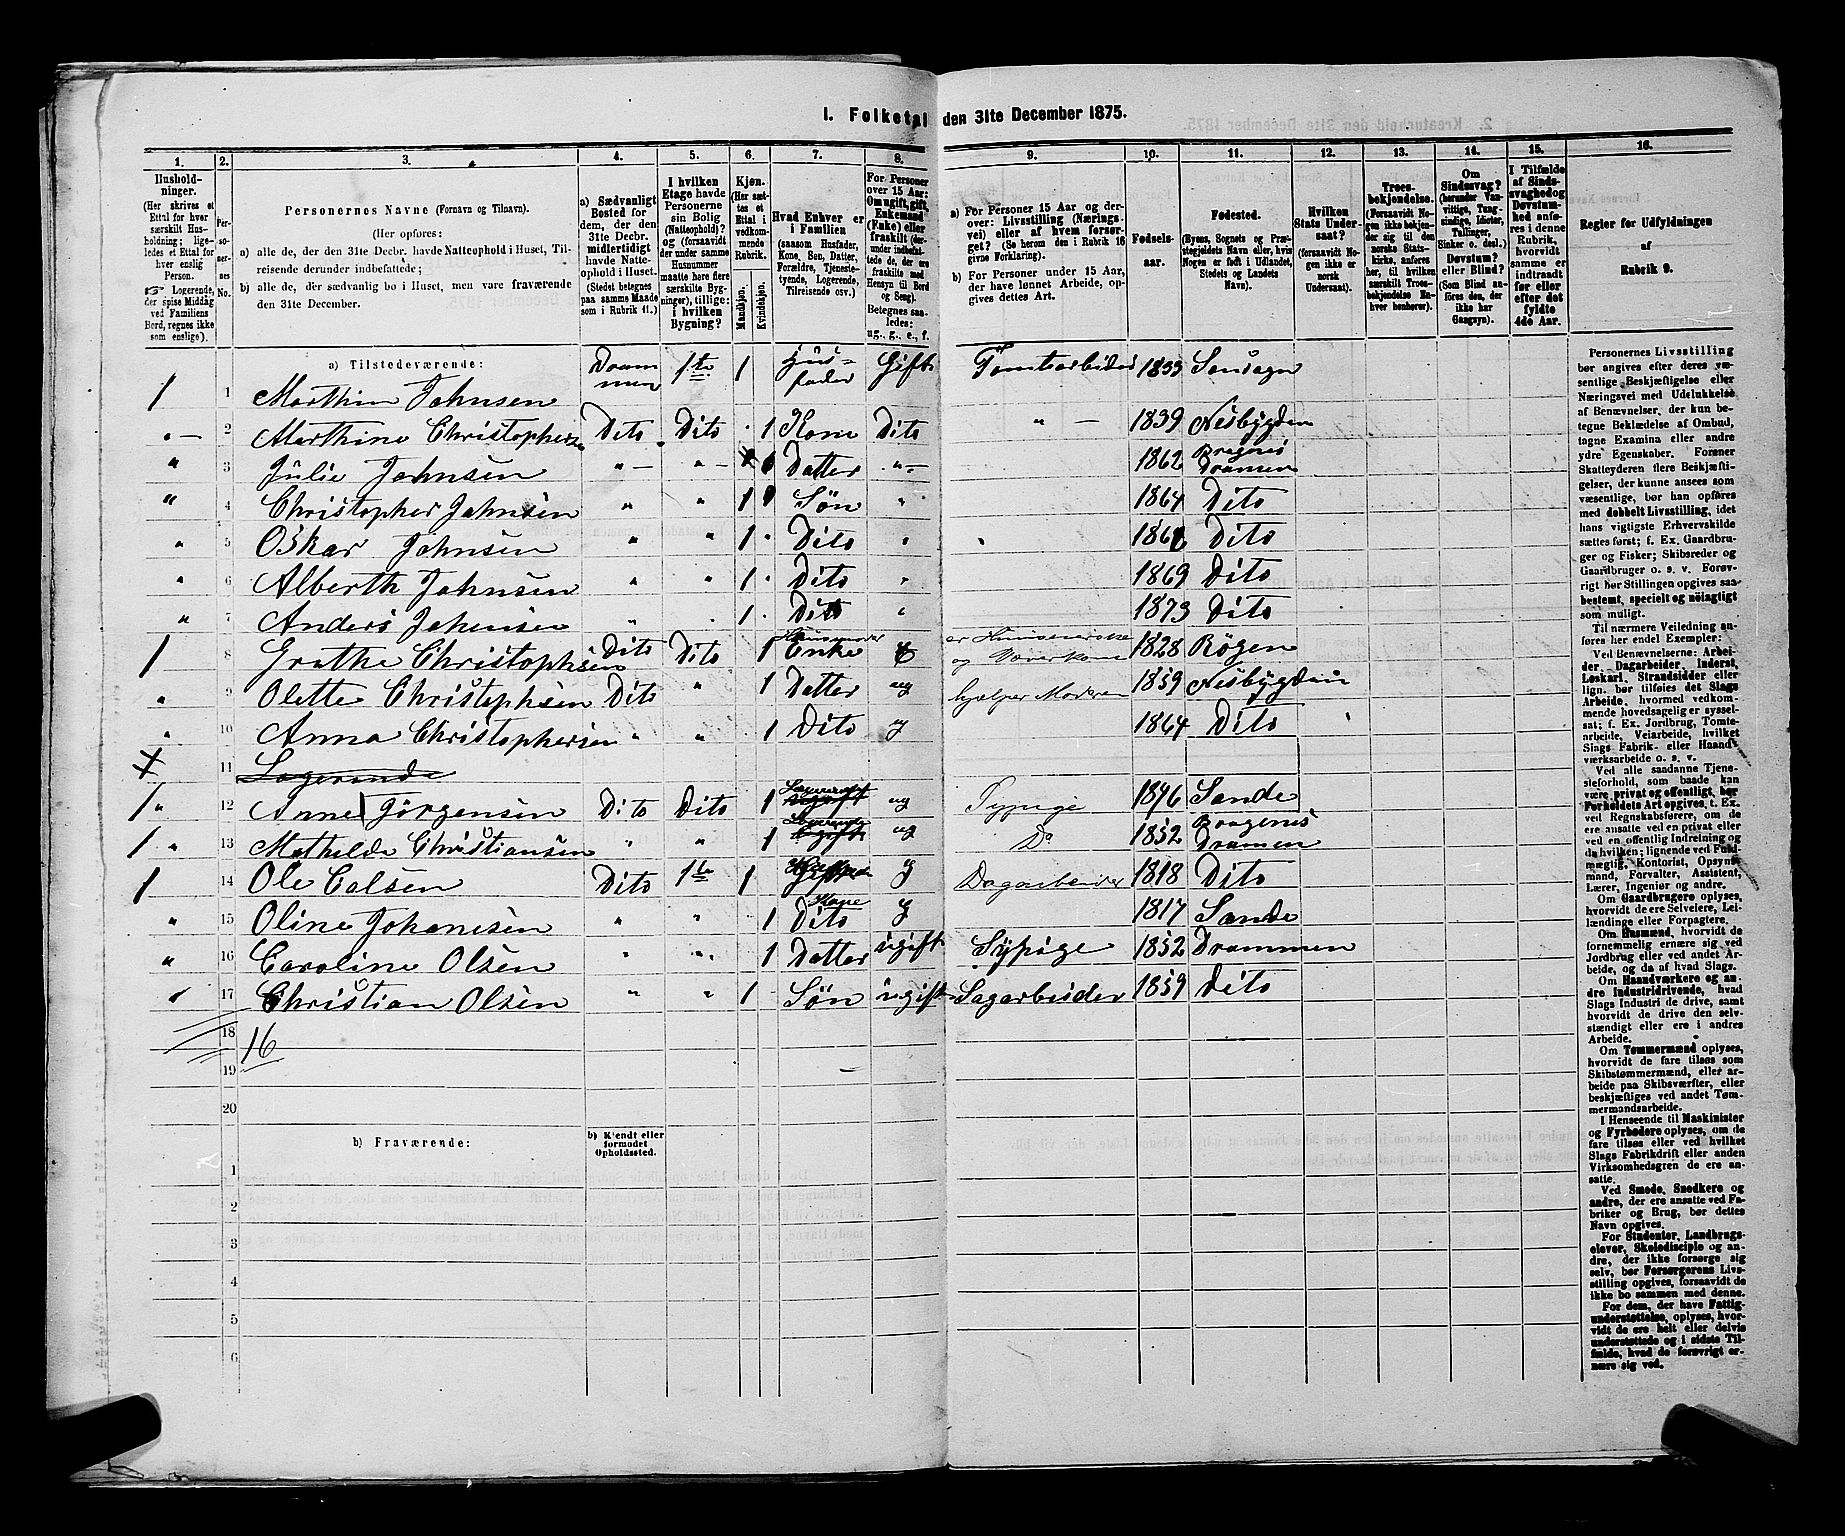 I. Folketal den 31te December 1875.
1. 2. 3. 4. 5. 6. 7. 8. 9. 10. 11. 12. 13. 14. 15. 16.
Husholdninger. (Her skrives et Ettal for hver særskilt Husholdning; ligeledes et Ettal for hver enslig Person. Logerende, der spise Middag ved Familiens Bord, regnes ikke som enslige).
Personernes No.
Personernes Navne (Fornavn og Tilnavn).
(Her opføres:
a) alle de, der den 31te Decbr. havde Natteophold i Huset, Tilreisende derunder indbefattede;
b) alle de, der sædvanlig bo i Huset, men vare fraværende den 31te December.
a) Sædvanligt Bosted for dem, der den 31te Decbr. midlertidigt havde Natteophold i Huset. (Stedet betegnes paa samme Maade som i Rubrik 11.)
I hvilken Etage havde Personerne sin Bolig (Natteophold)? og (forsaavidt der under samme Husnummer maatte høre flere særskilte Bygninger), tillige: i hvilken Bygning?
Kjøn. (Her sættes et Ettal i vedkommende Rubrik. Mandkjøn. Kvindekjøn.
Hvad Enhver er i Familien (saasom Husfader, Kone, Søn, Datter, Forældre, Tjenestetyende, Logerende, Tilreisende osv.)
For Personer over 15 Aar: Om ugift, gift, Enkemand (Enke) eller fraskilt (derunder indbefattede de, der ere fraskilte med Hensyn til Bord og Seng). Betegnes saaledes: ug., g., e., f.
a) For Personer 15 Aar og derover: Livsstilling (Næringsvei) eller af hvem forsørget? (Se herom den i Rubrik 16 givne Forklaring).
b) For Personer under 15 Aar, der have lønnet Arbeide, opgives dettes Art.
Fødselsaar.
Fødested. (Byens, Sognets og Præstegjeldets Navn eller, hvis Nogen er født i Udlandet, Stedets og Landets Navn).
Hvilken Stats Undersaat? (forsaavidt Nogen ikke er norsk Undersaat).
Troesbekjendelse. (Forsaavidt Nogen ikke bekjender sig til den norske Statskirke, anføres her, til hvilken særskilt Troesbekjendelse Enhver henhører).
Om Sindssvag? (herunder Vanvittige, Tungsindige, Idioter, Tullinger, Sinker o. desl.) Døvstum? eller Blind? (Som Blind anføres den, der ikke har Gangsyn).
I Tilfælde af Sindssvaghed og Døvstumhed anføres i denne Rubrik, hvorvidt samme er indtraadt før eller efter det fyldte 4de Aar.
Regler for Udfyldningen af Rubrik 9.
a) Tilstedeværende:
1 1 Marthin Johnsen Drammen 1te 1 Husfader Gift Tomtarbeider 1833 Sansogn
" — 2 Marthine Christophersen Dito Dito 1 Kone Dito " — 1839 Nesbygden
" 3 Julie Johnsen " — " — 1 Datter " — 1862 Bragnes Dramen
" 4 Christopher Johnsen " " 1 Søn " 1864 Dito
" 5 Oskar Johnsen " " 1 Dito " Dito
" 6 Alberth Johnsen " " 1 Dito " 1869 Dito
" 7 Anders Johensen " 1 Dito " 1873 Dito
1 8 Grathe Christophsen Dito Dito 1 Huusmoder Enke er Huusmoder og Væverkone 1828 Røgen
" 9 Olette Christophsen Dito " 1 Datter ug hjælper Moderen 1859 Nesbygden
" 10 Anna Christophersen " " 1 Dito 1864 Dito
11 Logerende
1 " 12 Anne Jørgensen Dito Dito 1 Logerende ug Sypige 1846 Sande
1 " 13 Mathilde Christiansen " " 1 Logerende ug Do 1852 Bragenes Dramen
1 14 Ole Colsen Dito 1te 1 g Dagarbeider 1818 Dito
" 15 Oline Johanesen " " 1 Dito Kone g 1817 Sande
" 16 Caroline Olsen " " 1 Datter ugift Sypige 1852 Drammen
" 17 Christian Olsen " " 1 Søn ugift Sagarbeider 1859 Dito
18 16
19
20
b) Fraværende:
b) Kjendt eller formodet Opholdssted.
1
2
3
4
5
6
Personernes Livsstilling bør angives efter deres væsentlige Beskjæftigelse eller Næringsvei med Udelukkelse af Benævnelser, der kun betegne Beklædelse af Ombud, tagne Examina eller andre ydre Egenskaber. Forener Skatteyderen flere Beskjæftigelser, der kunne ansees som væsentlige, bør han opføres med dobbelt Livsstilling, idet hans vigtigste Erhvervskilde sættes først; f. Ex. Gaardbruger og Fisker; Skibsreder og Gaardbruger o. s. v. Forøvrigt bør Stillingen opgives saa bestemt, specielt og nøiagtigt som muligt.
Til nærmere Veiledning anføres her endel Exempler:
Ved Benævnelserne: Arbeider, Dagarbeider, Inderst, Løskarl, Strandsidder eller lign. bør tilføies det Slags Arbeide, hvormed vedkommende hovedsagelig er sysselsat; f. Ex. Jordbrug, Tomtearbeide, Veiarbeide, hvilket Slags Fabrik- eller Haandværksarbeide o. s. v.
Ved alle saadanne Tjenesleforhold, som baade kan være privat og offentligt, bør Forholdets Art opgives, t. Ex. ved Regnskabsførere, om de ere ansatte ved en privat eller en offentlig Indretning og da hvilken; lignende ved Fuldmægtig, Kontorist, Opsynsmand, Forvalter, Assistent, Lærer, Ingeniør og andre.
Om Gaardbrugere oplyses, hvorvidt de ere Selveiere, Leilændinge eller Forpagtere.
Om Husmænd, hvorvidt de fornemmelig ernære sig ved Jordbrug eller ved andet Arbeide, og da af hvad Slags.
Om Haandværkere og andre Industridrivende, hvad Slags Industri de drive, samt hvorvidt de drive den selvstændigt eller ere i andres Arbeide.
Om Tømmermænd oplyses, hvorvidt de fare tilsøs som Skibstømmermænd, eller arbeide paa Skibsværfter, eller beskjæftiges ved andet Tømmermandsarbeide.
I Henseende til Maskinister og Fyrbødere oplyses, om de fare tilsøs eller ved hvilket Slags Fabrikdrift eller anden Virksomhedsgren de ere ansatte.
Ved Smede, Snedkere og andre, der ere ansatte ved Fabriker og Brug, bør dettes Navn opgives.
For Studenter, Landbrugselever, Skoledisciple og andre, der ikke forsørge sig selv, bør Forsørgerens Livsstilling opgives, forsaavidt de ikke bo sammen med denne.
For dem, der have Fattigunderstøttelse, oplyses, hvorvidt de ere helt eller delvis understøttede og i sidste Tilfælde, hvad de forøvrigt ernære sig ved.